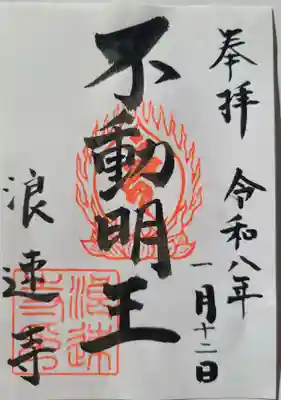 奉拝
令和八年
一月十二日
不動明王
浪速寺